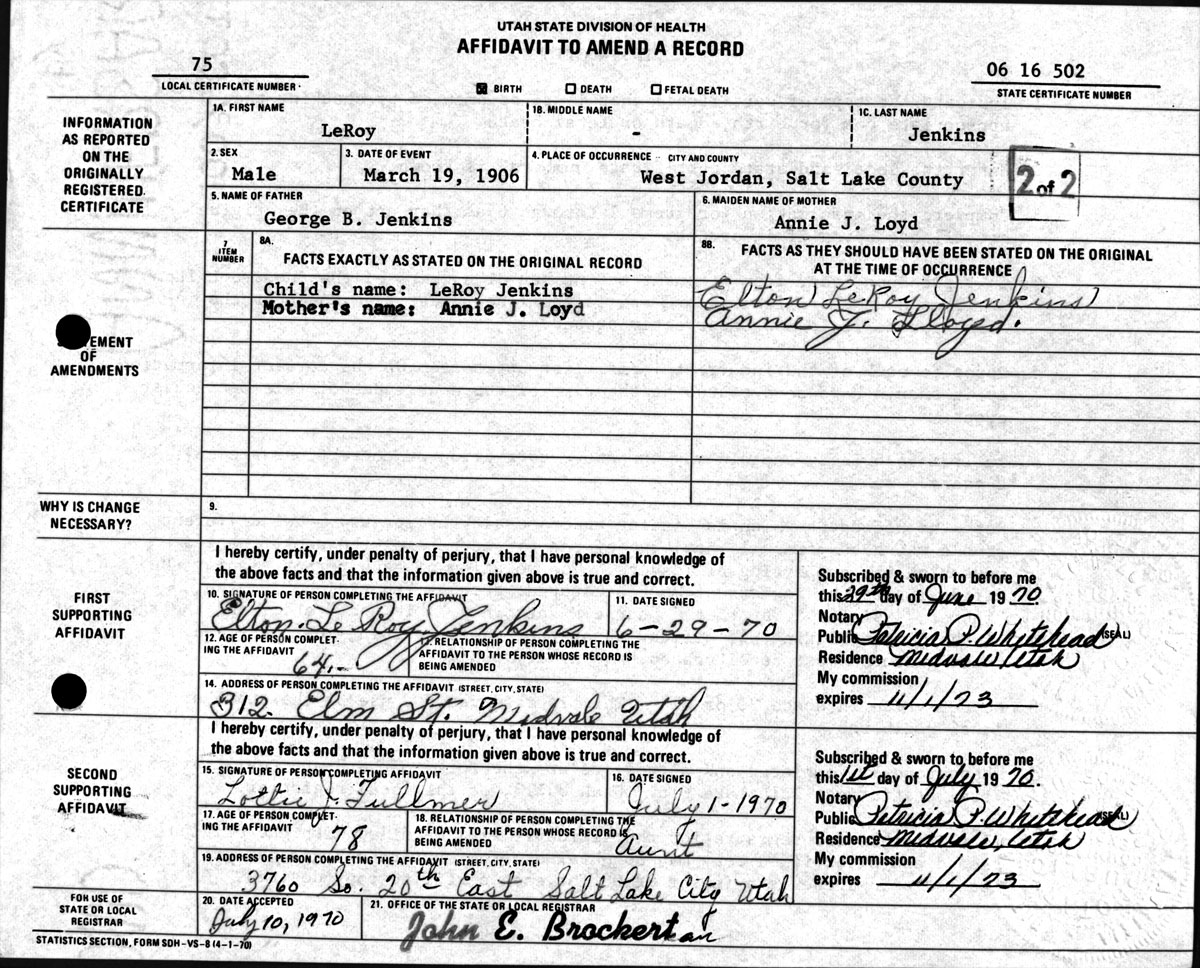 UTAH STATE DIVISION OF HEALTH
AFFIDAVIT TO AMEND A RECORD
75
LOCAL CERTIFICATE NUMBER
BIRTH DEATH FETAL DEATH
06 16 502
STATE CERTIFICATE NUMBER
INFORMATION
AS REPORTED
ON THE
ORIGINALLY
REGISTERED
CERTIFICATE
1A. FIRST NAME
LeRoy
1B. MIDDLE NAME
-
1C. LAST NAME
Jenkins
2. SEX
Male
3. DATE OF EVENT
March 19, 1906
4. PLACE OF OCCURRENCE - CITY AND COUNTY
West Jordan, Salt Lake County
2 of 2
5. NAME OF FATHER
George B. Jenkins
6. MAIDEN NAME OF MOTHER
Annie J. Loyd
7
ITEM
NUMBER
8A.
FACTS EXACTLY AS STATED ON THE ORIGINAL RECORD
8B. FACTS AS THEY SHOULD HAVE BEEN STATED ON THE ORIGINAL
AT THE TIME OF OCCURRENCE
Child's name: LeRoy Jenkins
Elton LeRoy Jenkins
Mother's name: Annie J. Loyd
Annie J. Lloyd.
EMENT
OF
AMENDMENTS
WHY IS CHANGE
NECESSARY?
9.
FIRST
SUPPORTING
AFFIDAVIT
I hereby certify, under penalty of perjury, that I have personal knowledge of
the above facts and that the information given above is true and correct.
10. SIGNATURE OF PERSON COMPLETING THE AFFIDAVIT
Elton Le Roy Jenkins
11. DATE SIGNED
6-29-70
12. AGE OF PERSON COMPLET-
ING THE AFFIDAVIT
64
13. RELATIONSHIP OF PERSON COMPLETING THE
AFFIDAVIT TO THE PERSON WHOSE RECORD IS
BEING AMENDED
14. ADDRESS OF PERSON COMPLETING THE AFFIDAVIT (STREET, CITY, STATE)
312 Elm St. Midvale Utah
Subscribed & sworn to before me
this 29th day of June 1970
Notary
Public Patricia P. Whitehead (SEAL)
Residence Midvale, Utah
My commission
expires 11/1/73
SECOND
SUPPORTING
AFFIDAVIT
I hereby certify, under penalty of perjury, that I have personal knowledge of
the above facts and that the information given above is true and correct.
15. SIGNATURE OF PERSON COMPLETING AFFIDAVIT
Lottie J. Fullmer
16. DATE SIGNED
July 1-1970
17. AGE OF PERSON COMPLET-
ING THE AFFIDAVIT
78
18. RELATIONSHIP OF PERSON COMPLETING THE
AFFIDAVIT TO THE PERSON WHOSE RECORD IS
BEING AMENDED
Aunt
19. ADDRESS OF PERSON COMPLETING THE AFFIDAVIT (STREET, CITY, STATE)
3760 So. 20th East Salt Lake City Utah
Subscribed and sworn to before me
this 1st day of July 1970.
Notary
Public Patricia P. Whitehead (SEAL)
Residence Midvale, Utah
My commission
expires 11/1/73
FOR USE OF
STATE OR LOCAL
REGISTRAR
20. DATE ACCEPTED
July 10, 1970
21. OFFICE OF THE STATE OR LOCAL REGISTRAR
John E. Brockert
STATISTICS SECTION, FORM SDH-VS-8 (4-1-70)